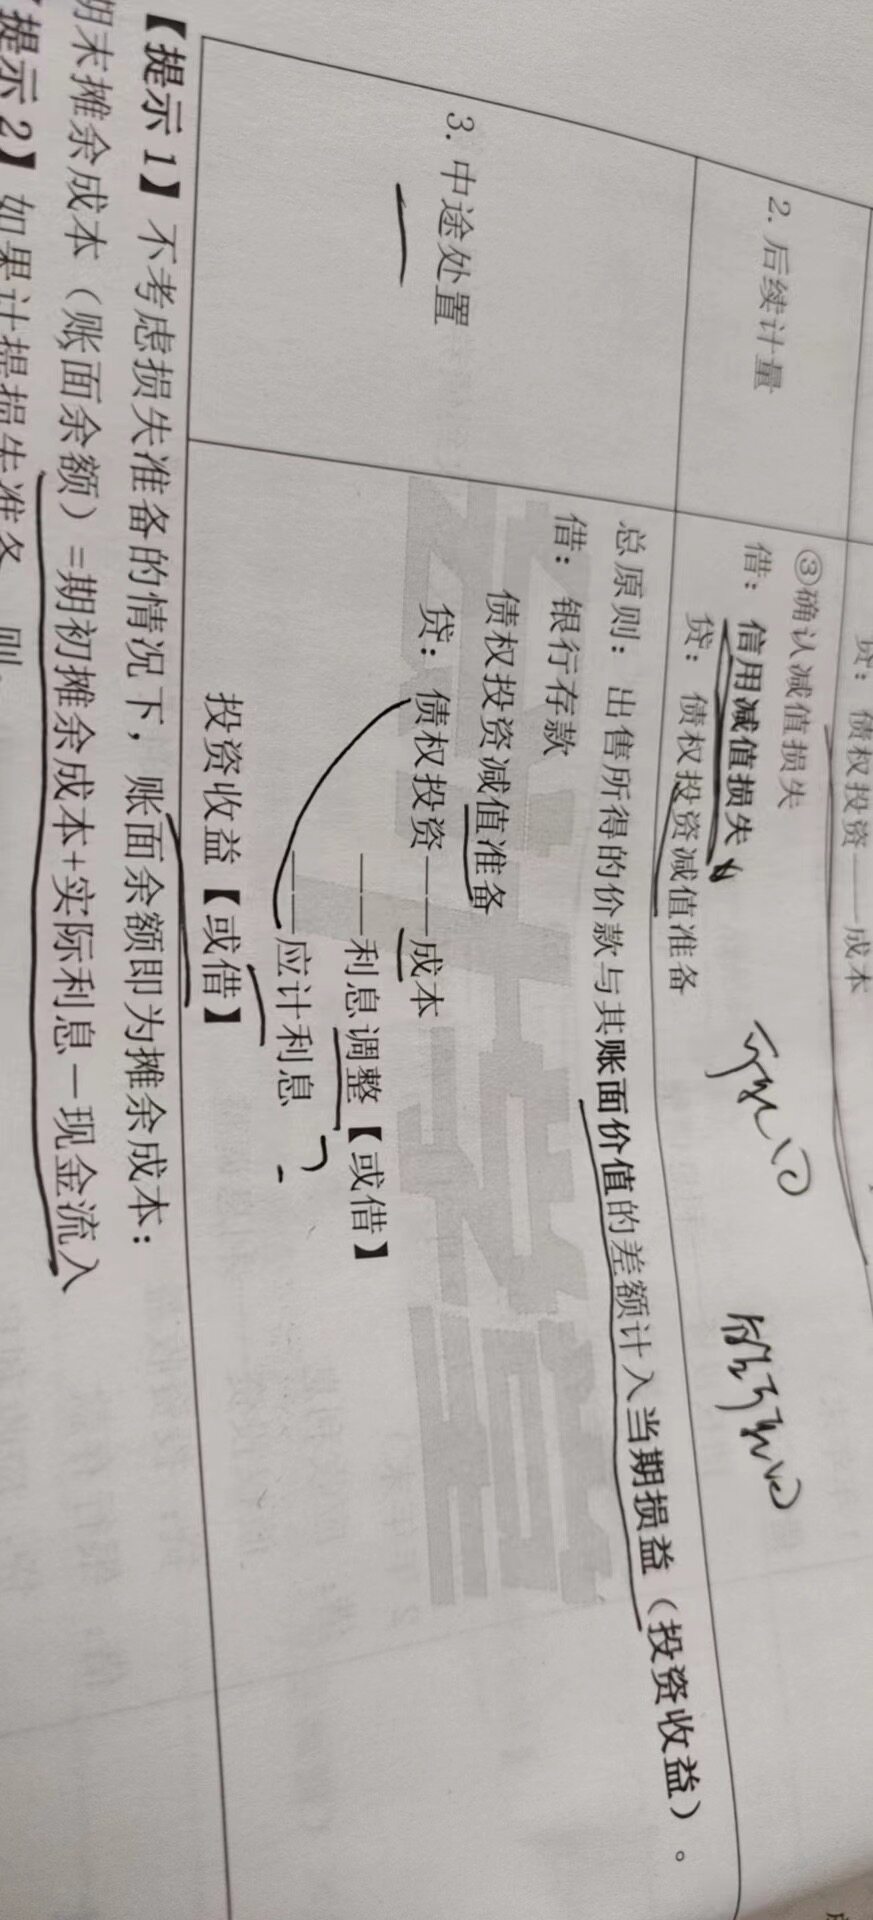 贷：债权投资——成本
③确认减值损失
借：信用减值损失
贷：债权投资减值准备
2. 后续计量
总原则：出售所得的价款与其账面价值的差额计入当期损益（投资收益）。
借：银行存款
债权投资减值准备
贷：债权投资——成本
——利息调整【或借】
——应计利息 ?
投资收益【或借】
3. 中途处置
【提示 1】不考虑损失准备的情况下，账面余额即为摊余成本：
期末摊余成本（账面余额）=期初摊余成本+实际利息－现金流入
【提示 2】如果计提损失准备，则